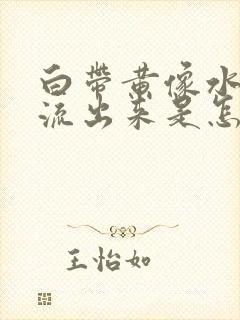 白带黄像水
流出来是怎
王怡如